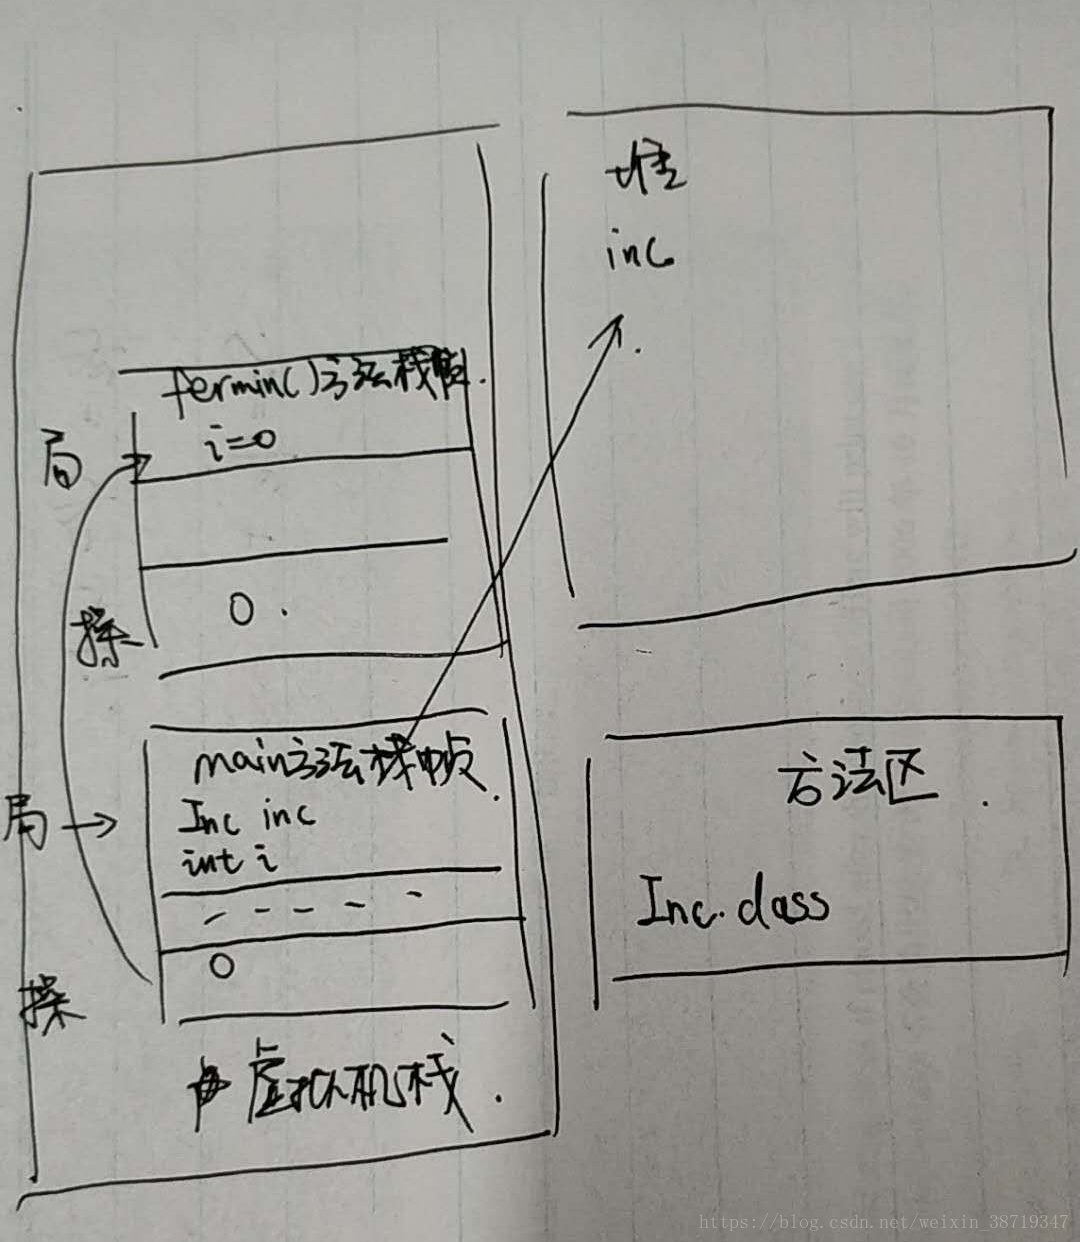 fermin()方法栈帧.
i=0
局
0.
操
main方法栈帧.
局
Inc inc
int i
0
操
虚拟机栈.
堆
inc
方法区.
Inc.class
https://blog.csdn.net/weixin_38719347